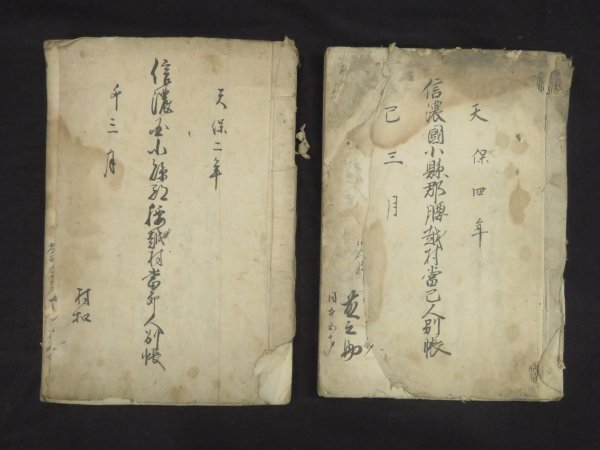 天保四年
信濃國小縣郡腰越村當巳人別帳
巳三月
之助
天保二年
信濃国小縣郡腰越村當卯人別帳
三月
村扣